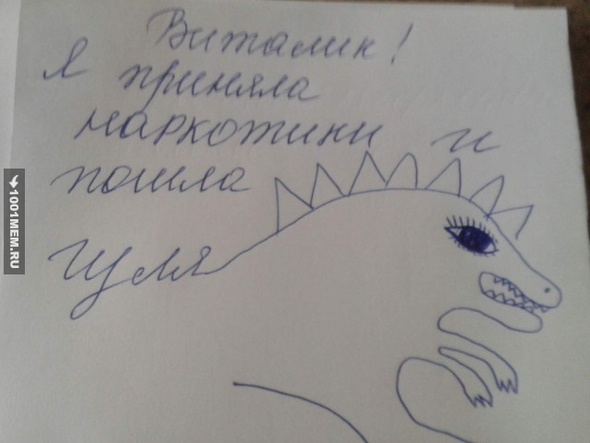 Виталик!
Я приняла
наркотики и
пошла
гуля
1001MEM.RU